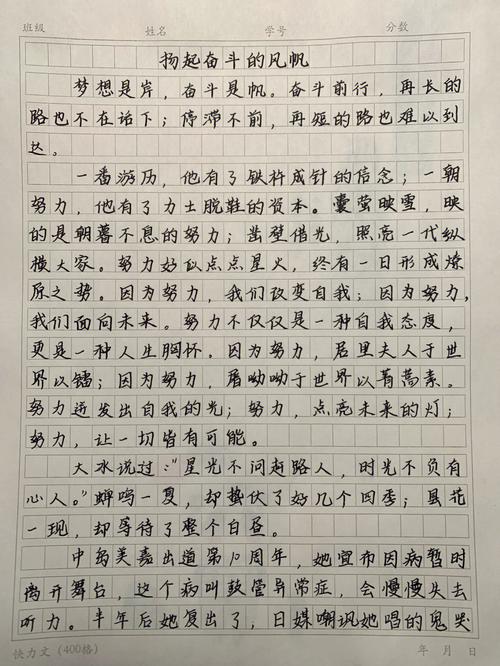 班级 姓名 学号 分数
扬起奋斗的风帆
梦想是岸，奋斗是帆。奋斗前行，再长的
路也不在话下；停滞不前，再短的路也难以到
达。
一番游历，他有了铁杵成针的信念；一朝
努力，他有了力士脱鞋的资本。囊萤映雪，映
的是朝暮不息的努力；凿壁借光，照亮一代纵
横大家。努力好似点点星火，终有一日形成燎
原之势。因为努力，我们改变自我；因为努力，
我们面向未来。努力不仅仅是一种自我态度，
更是一种人生胸怀。因为努力，居里夫人于世
界以镭；因为努力，屠呦呦于世界以青蒿素。
努力迸发出自我的光；努力，点亮未来的灯；
努力，让一切皆有可能。
大冰说过："星光不问赶路人，时光不负有
心人。"蝉鸣一夏，却蛰伏了好几个四季；昙花
一现，却等待了整个白昼。
中岛美嘉出道第10周年，她宣布因病暂时
离开舞台，这个病叫鼓管异常症，会慢慢失去
听力。半年后她复出了，日媒嘲讽她唱的鬼哭
快力文（400格） 年 月 日